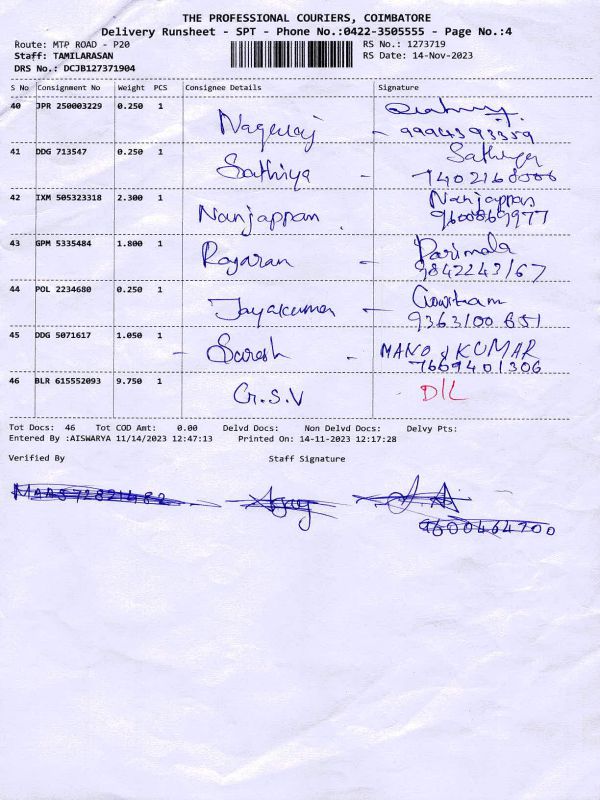 THE PROFESSIONAL COURIERS, COIMBATORE
Delivery Runsheet - SPT - Phone No.:0422-3505555 - Page No.:4
Route: MTP ROAD - P20
RS No.: 1273719
Staff: TAMILARASAN
RS Date: 14-Nov-2023
DRS No.: DCJB127371904
S No Consignment No Weight PCS Consignee Details Signature
40 JPR 250003229 0.250 1
Nagaraj - 9994393359
41 DDG 713547 0.250 1 Sathiya
Sathiya - 7402168006
42 IXM 505323318 2.300 1 Nanjappan
Nanjappan 9600869977
43 GPM 5335484 1.800 1 Parimala
Rajaran - 9842243167
44 POL 2234680 0.250 1 Gowtham
Jayakumar - 9363100651
45 DDG 5071617 1.050 1
- Suresh - MANOJ KUMAR
7669401306
46 BLR 615552093 9.750 1 G.S.V D/L
Tot Docs: 46 Tot COD Amt: 0.00 Delvd Docs: Non Delvd Docs: Delvy Pts:
Entered By :AISWARYA 11/14/2023 12:47:13 Printed On: 14-11-2023 12:17:28
Verified By Staff Signature
9600464700